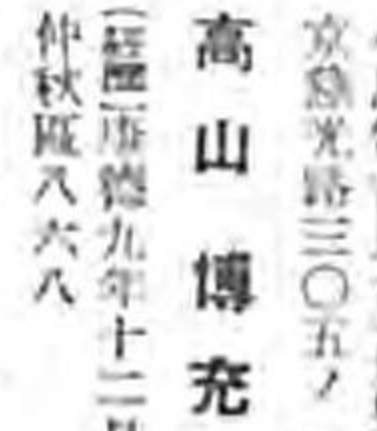 京慈光路三〇五ノ
高山博充
(経歴)康徳九年十二月
仲秋區八六八